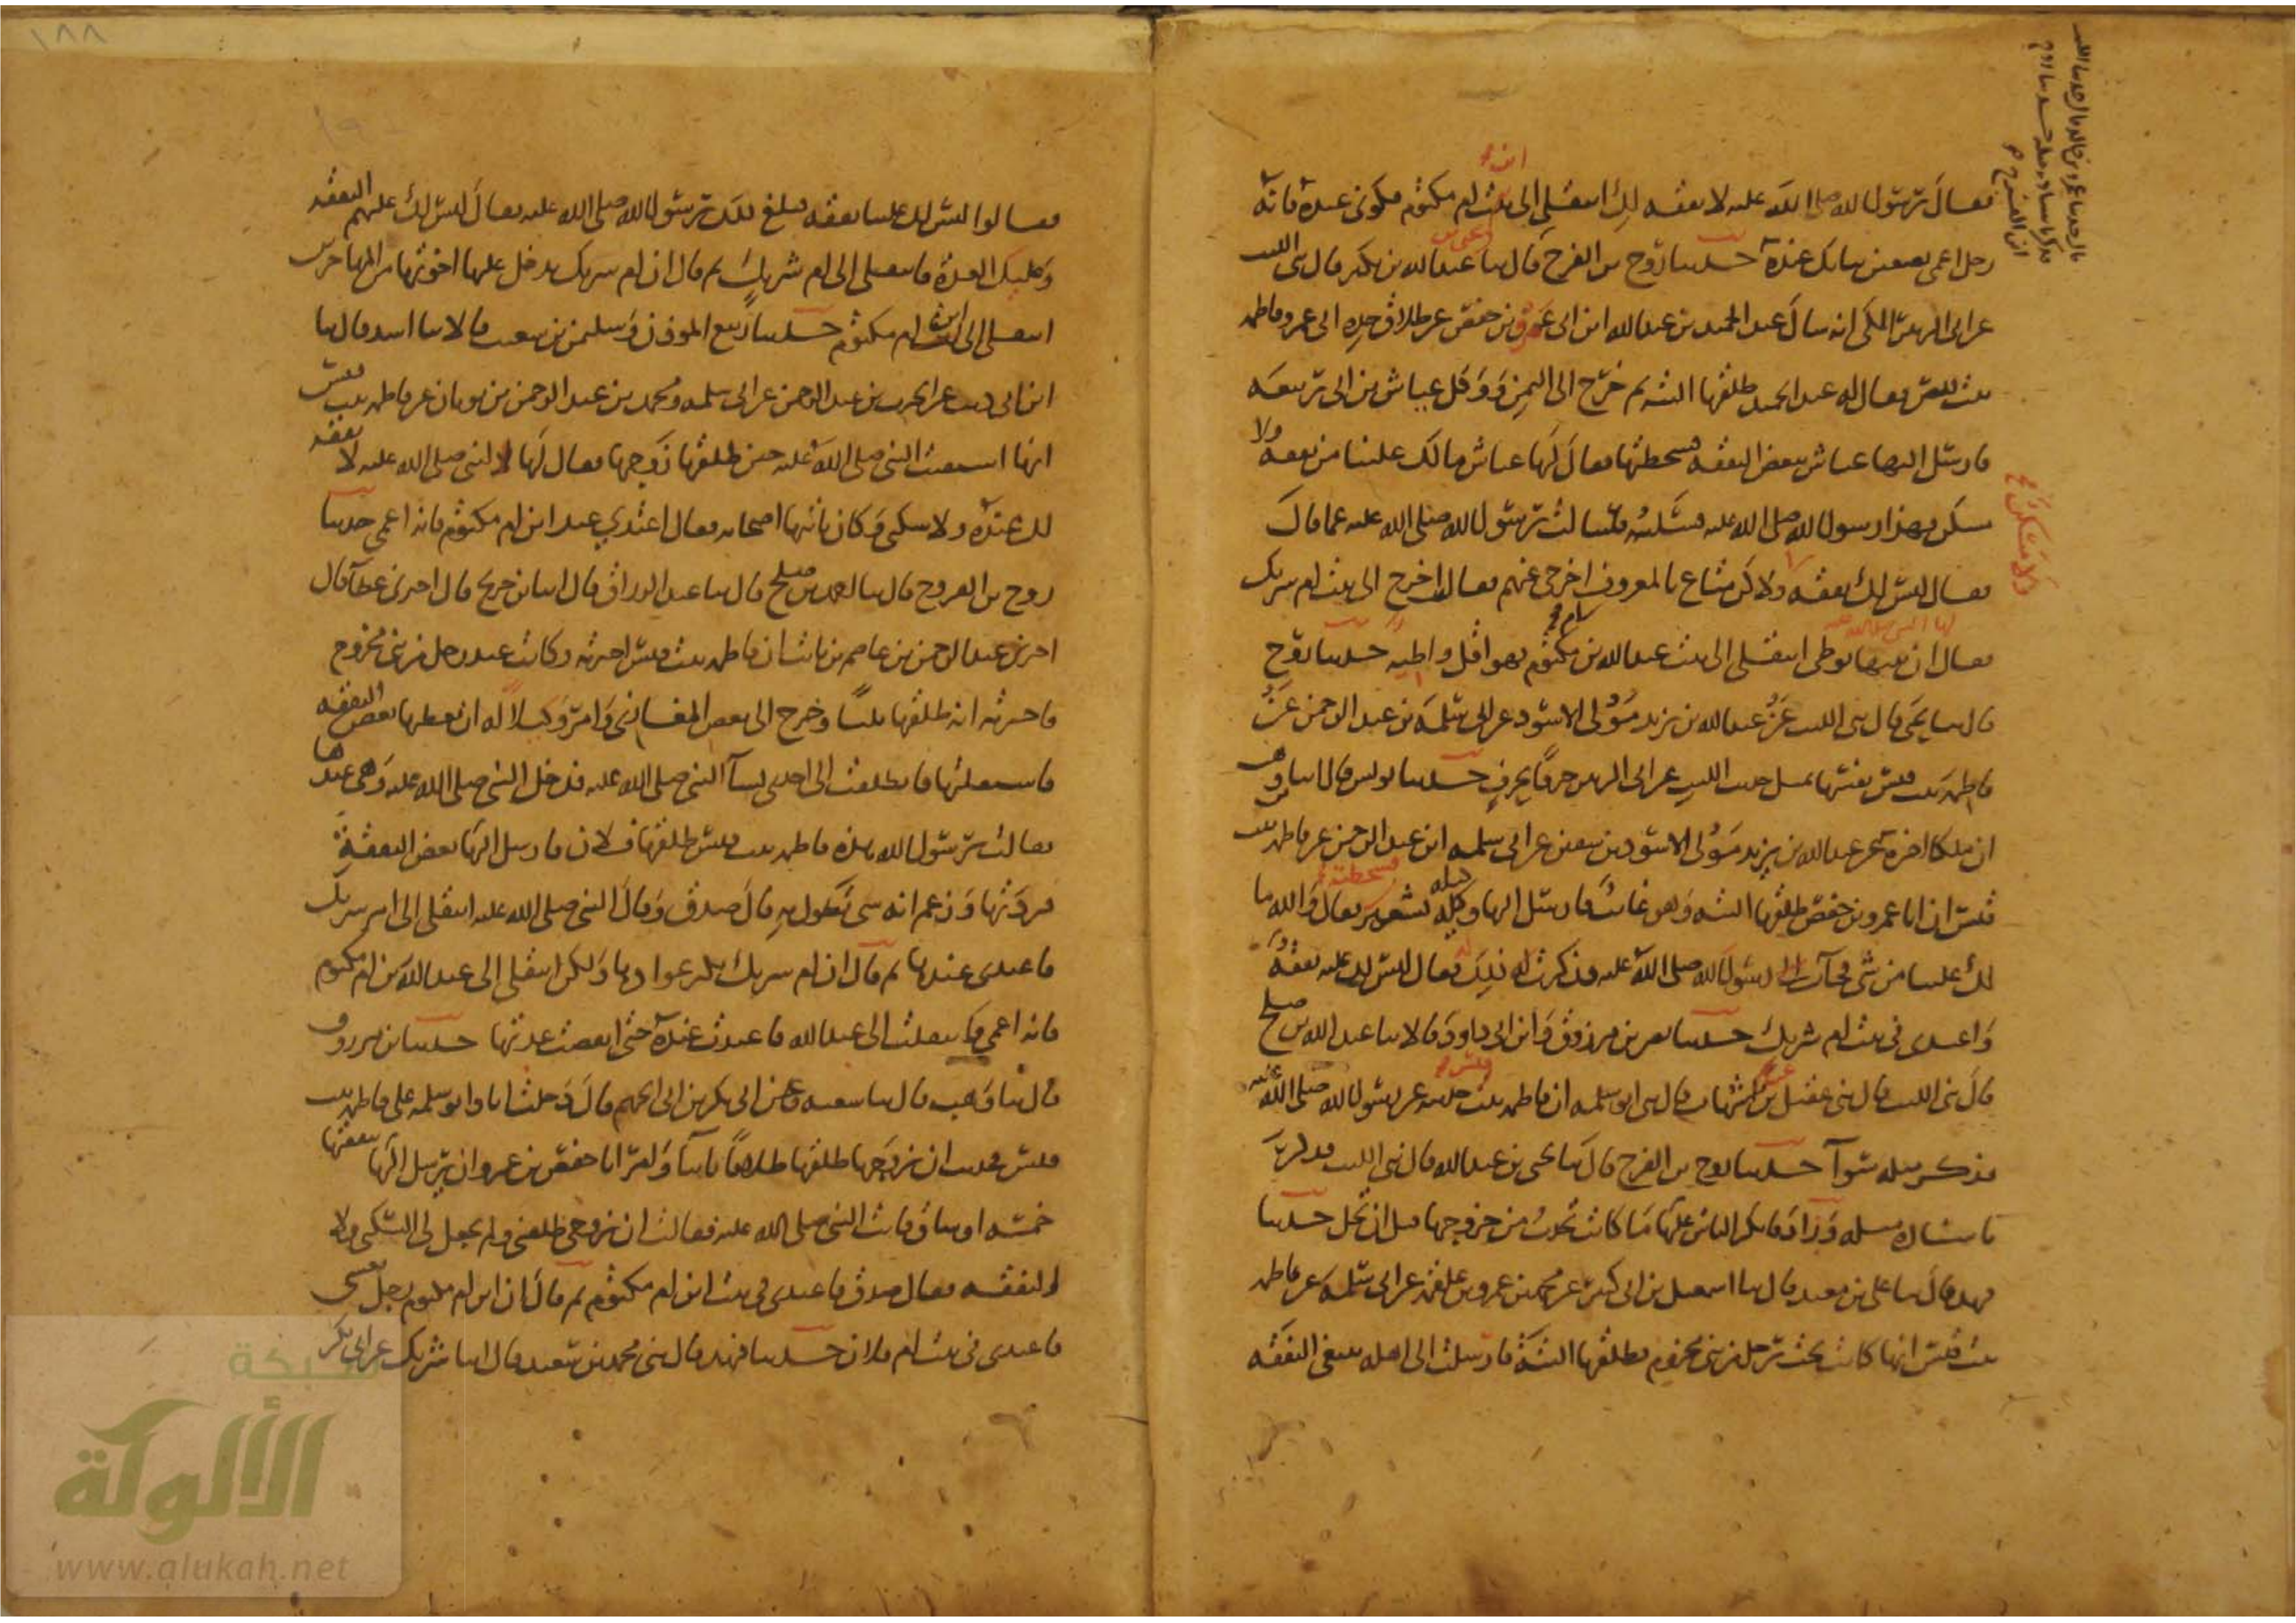 فقال رسول الله صلى الله عليه لا نفقه لك انتقلي الى بيت ام مكتوم فكوني عنده فانه
رجل اعمى تضعين ثيابك عنده حدثنا روح بن الفرج قال ثنا عبد الله بن بكير قال ثني الليث
عن ابي الزبير المكي انه سال عبد الحميد بن عبد الله ابن ابي عمرو بن حفص عن طلاق جده ابي عمرو فاطمه
بنت قيس فقال له عبد الحميد طلقها البته ثم خرج الى اليمن ووكل عياش بن ابي ربيعه
فارسل اليها عياش ببعض النفقه فسخطتها فقال لها عياش مالك علينا من نفقه ولا
سكن فهذا رسول الله صلى الله عليه فسليه فسالت رسول الله صلى الله عليه عما قال
فقال ليس لك نفقه ولا كن متاع بالمعروف اخرجي عنهم فقالت اخرج الى بيت ام شريك
فقال ان بيتها يوطى انتقلي الى بيت عبد الله بن مكتوم فهو اقل واطيه حدثنا روح
قال ثنا يحيى قال ثني الليث عن عبد الله بن يزيد مولى الاسود عن ابي سلمه بن عبد الرحمن عن
فاطمه بنت قيس نفسها بمثل حديث الليث عن ابي الزبير حرفا بحرف حدثنا يونس قال انا ابن وهب
ان مالكا اخبره عن عبد الله بن يزيد مولى الاسود بن سفين عن ابي سلمه ابن عبد الرحمن عن فاطمه بنت
قيس ان ابا عمرو بن حفص طلقها البته وهو غائب فارسل اليها وكيله بشعير فقال والله ما
لك علينا من شي فجات رسول الله صلى الله عليه فذكرت له ذلك فقال ليس لك عليه نفقه
واعتدي في بيت ام شريك حدثنا نصر بن مرزوق وابن ابي داود قالا ثنا عبد الله بن صلح
قال ثني الليث قال ثني عقيل بن شهاب قال ثني ابو سلمه ان فاطمه بنت حدثته عن رسول الله صلى الله عليه
فذكر مثله سوا حدثنا روح بن الفرج قال ثنا يحيى بن عبد الله قال ثني الليث فذكر
باسناده مثله وزاد فانكر الناس عليها ما كانت تحدث من خروجها قبل ان تحل حدثنا
فهد قال ثنا علي بن معبد قال ثنا اسمعيل بن ابي كثير عن محمد بن عمرو بن علقمه عن ابي سلمه عن فاطمه
بنت قيس انها كانت تحت رجل من بني مخزوم فطلقها البته فارسلت الى اهله تبتغي النفقه
فقالوا ليس لك علينا نفقه فبلغ ذلك رسول الله صلى الله عليه فقال ليس لك عليهم النفقه
وعليك العدة فانتقلي الى ام شريك ثم قال ان ام شريك يدخل عليها اخوتها من المهاجرين
انتقلي الى ابن ام مكتوم حدثنا ربيع الموذن وسليمن بن شعيب قالا ثنا اسد قال ثنا
ابن ابي ذيب عن الحرث بن عبد الرحمن عن ابي سلمه ومحمد بن عبد الرحمن بن ثوبان عن فاطمه بنت قيس
انها استفتت النبي صلى الله عليه حين طلقها زوجها فقال لها النبي صلى الله عليه لا نفقه
لك عنده ولا سكنى وكان ياتيها اصحابه فقال اعتدي عند ابن ام مكتوم فانه اعمى حدثنا
روح بن الفروج قال ثنا احمد بن صلح قال ثنا عبد الرزاق قال انا ابن جريج قال اخبرني عطا قال
اخبرني عبد الرحمن بن عاصم بن ثابت ان فاطمه بنت قيس اخبرته وكانت عند رجل من بني مخزوم
فاخبرته انه طلقها ثلثا وخرج الى بعض المغازي وامر وكيلا له ان يعطيها بعض النفقه
فاستقلتها فانطلقت الى احدى نسا النبي صلى الله عليه فدخل النبي صلى الله عليه وهي عندها
فقالت يرسول الله هذه فاطمه بنت قيس طلقها فلان فارسل اليها بعض النفقه
فردتها وزعم انه شي تطول به قال صدق وقال النبي صلى الله عليه انتقلي الى ام شريك
فاعتدي عندها ثم قال ان ام شريك يكثر عوادها ولكن انتقلي الى عبد الله بن ام مكتوم
فانه اعمى فانتقلت الى عبد الله فاعتدت عنده حتى انقضت عدتها حدثنا ابن مرزوق
قال ثنا وهب قال ثنا شعبه عن ابي بكر بن ابي الجهم قال دخلت انا وابو سلمه على فاطمه بنت
قيس فحدثت ان زوجها طلقها طلاقا باينا وامر ابا حفص بن عمرو ان يرسل اليها بنفقتها
خمسه اوساق فاتت النبي صلى الله عليه فقالت ان زوجي طلقني ولم يجعل لي السكنى ولا
النفقه فقال صدق فاعتدي في بيت ابن ام مكتوم ثم قال ان ابن ام مكتوم رجل يغشى
فاعتدي في بيت ام فلان حدثنا فهد قال ثني محمد بن سعيد قال انا شريك عن ابي بكر
١٨٨
شبكة
الألوكة
www.alukah.net